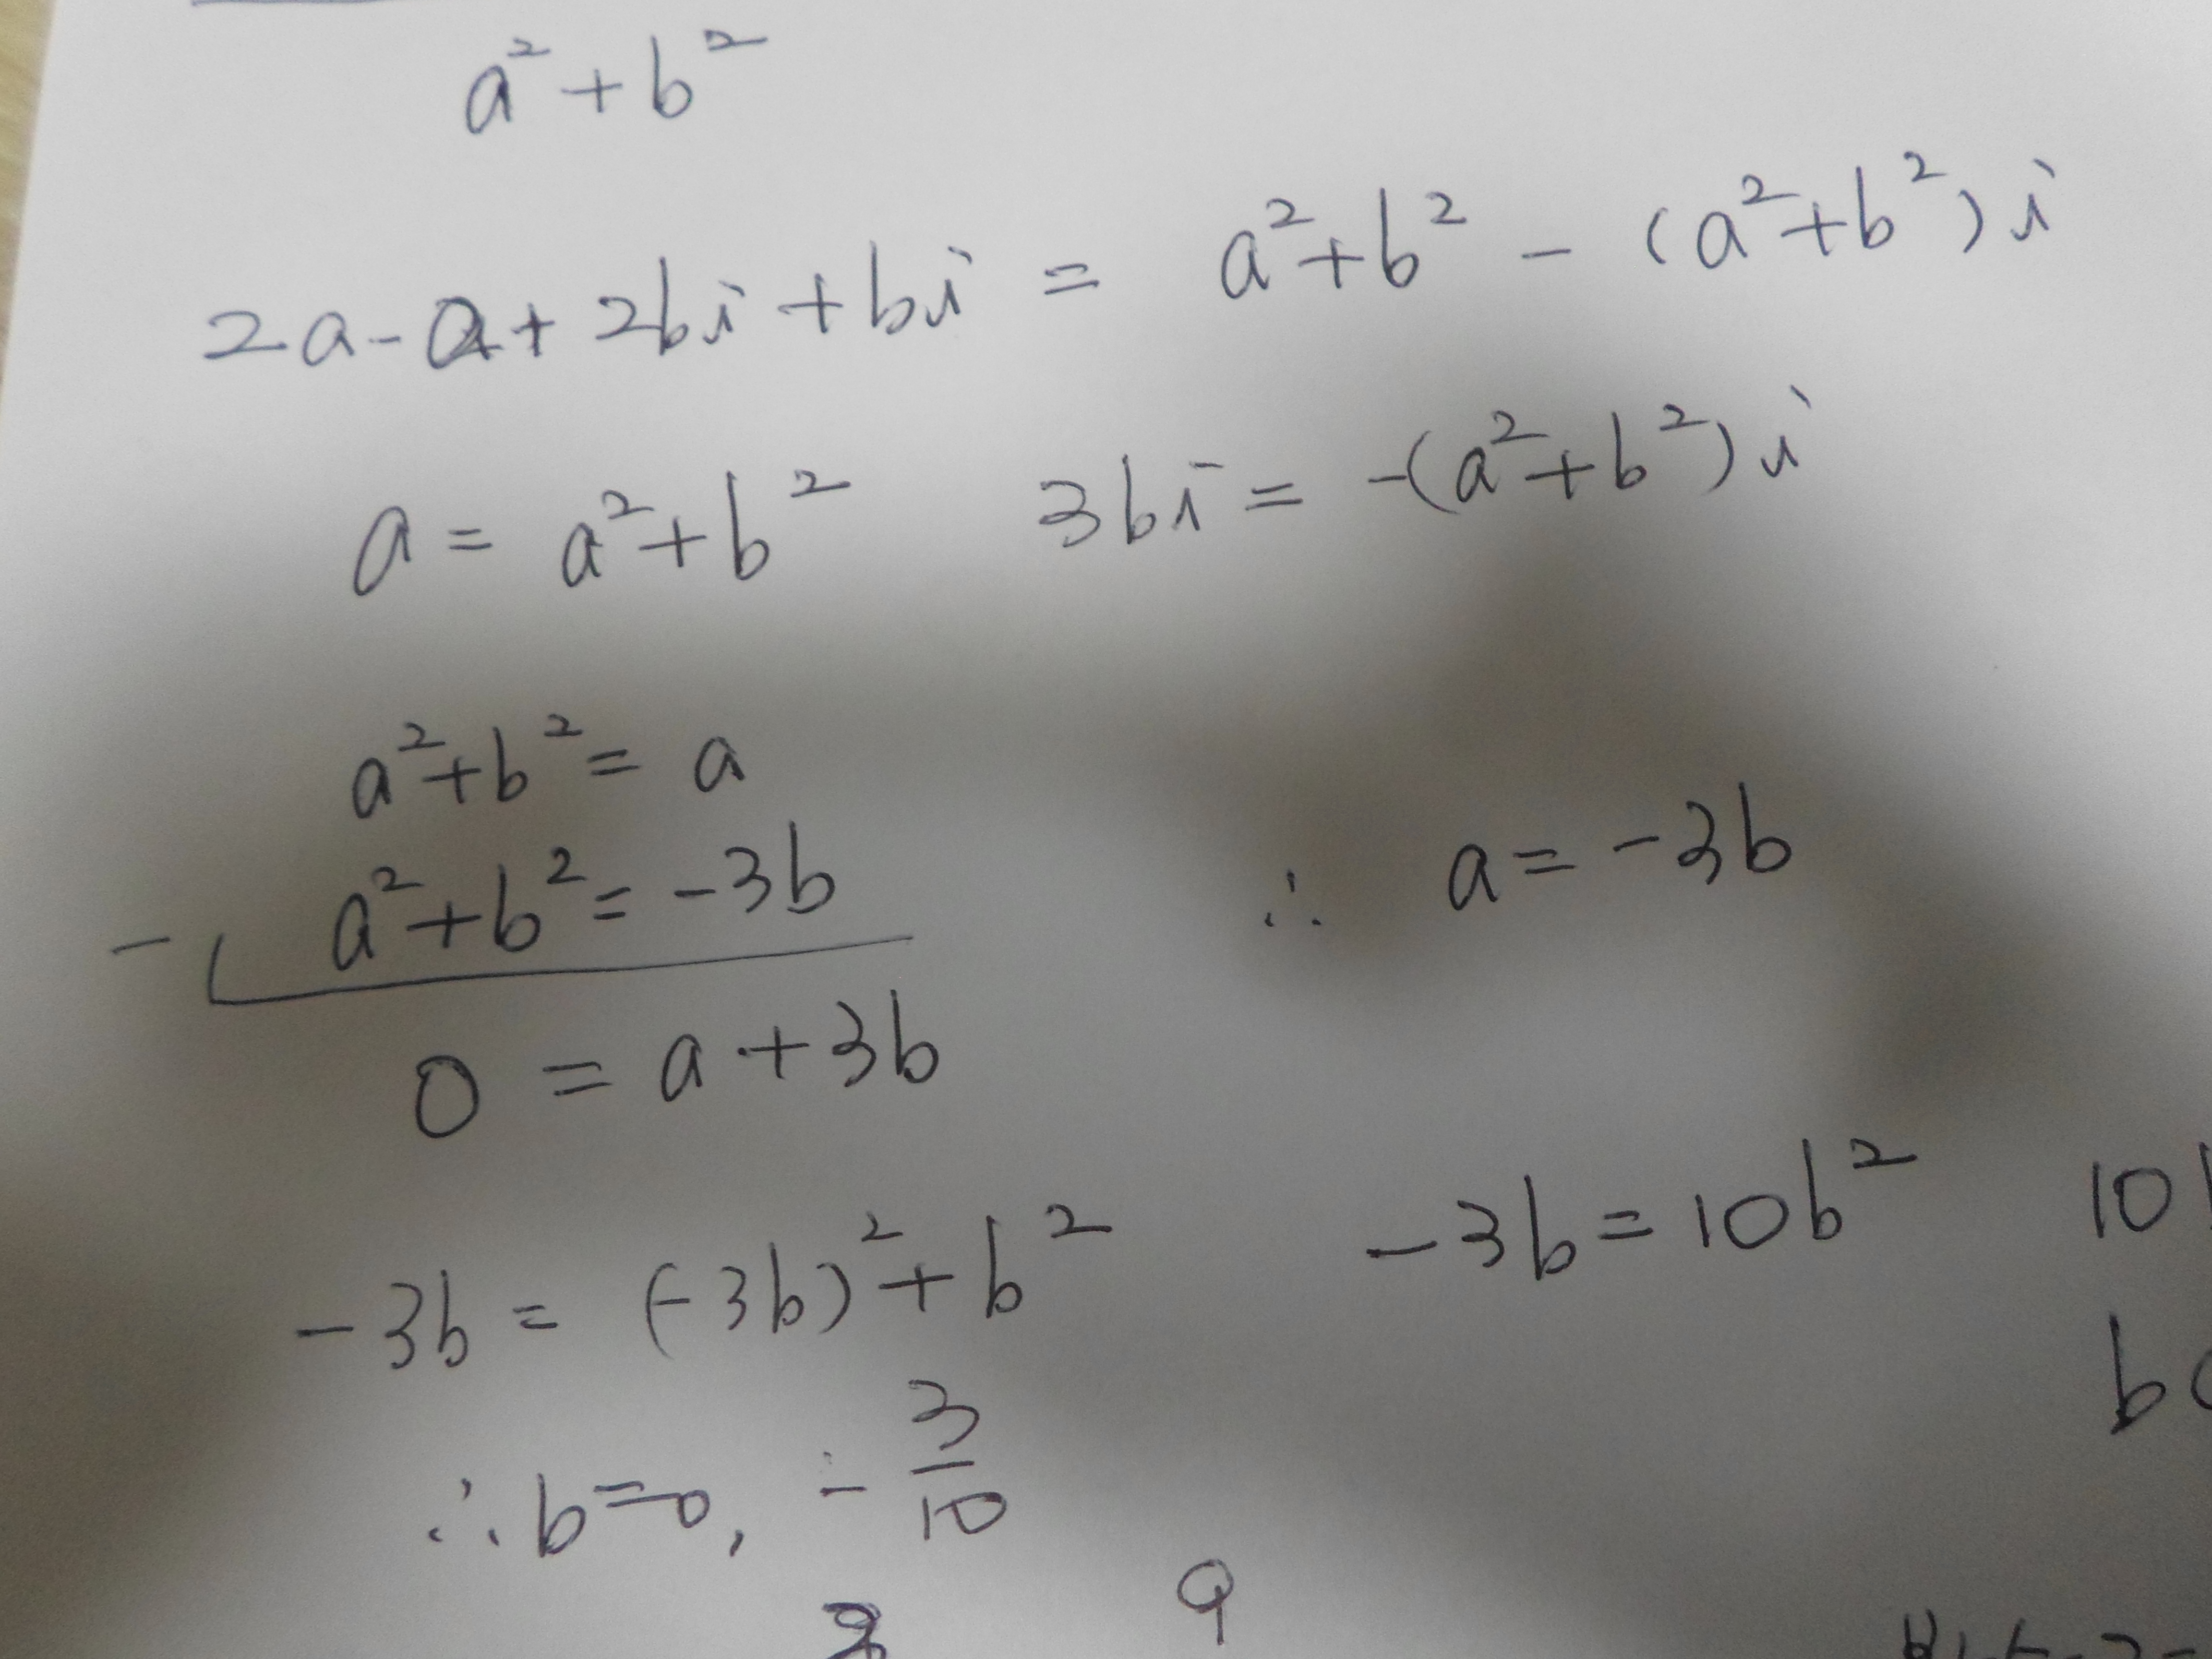 a² + b²
2a - a + 2bi + bi = a² + b² - (a² + b²)i
a = a² + b² 3bi = -(a² + b²)i
a² + b² = a
- a² + b² = -3b ∴ a = -3b
0 = a + 3b
-3b = (-3b)² + b² -3b = 10b² 10
b
∴ b = 0, -3/10
9